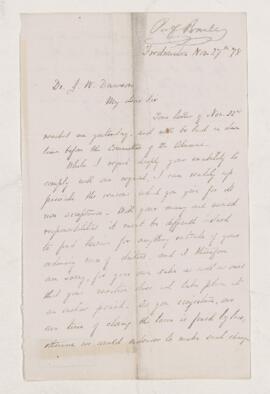 Fredericton Nov. 27th 78
Dr. J. W. Dawson
My dear Sir
Your letter of Nov. 22nd
reached me yesterday, and will be laid in due
time before the Committee of the
While I regret deeply your inability to
comply with our request, I can easily
perceive the reasons which you give for its
non acceptance. With your many and much
responsibilities it must be difficult indeed
to find leisure for anything outside of your
ordinary round of duties, and I therefore
am sorry, for your own sake as well as ours
that your vacation does not take place at
an earlier period. As you
our time of closing the term is fixed by law,
otherwise we would endeavor to make such change